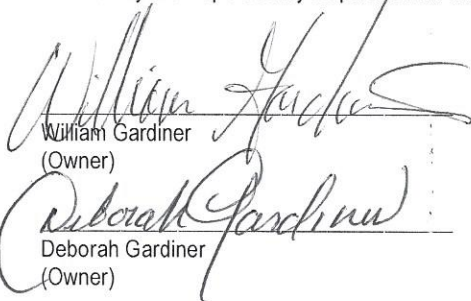 William Gardiner
William Gardiner
(Owner)
Deborah Gardiner
Deborah Gardiner
(Owner)